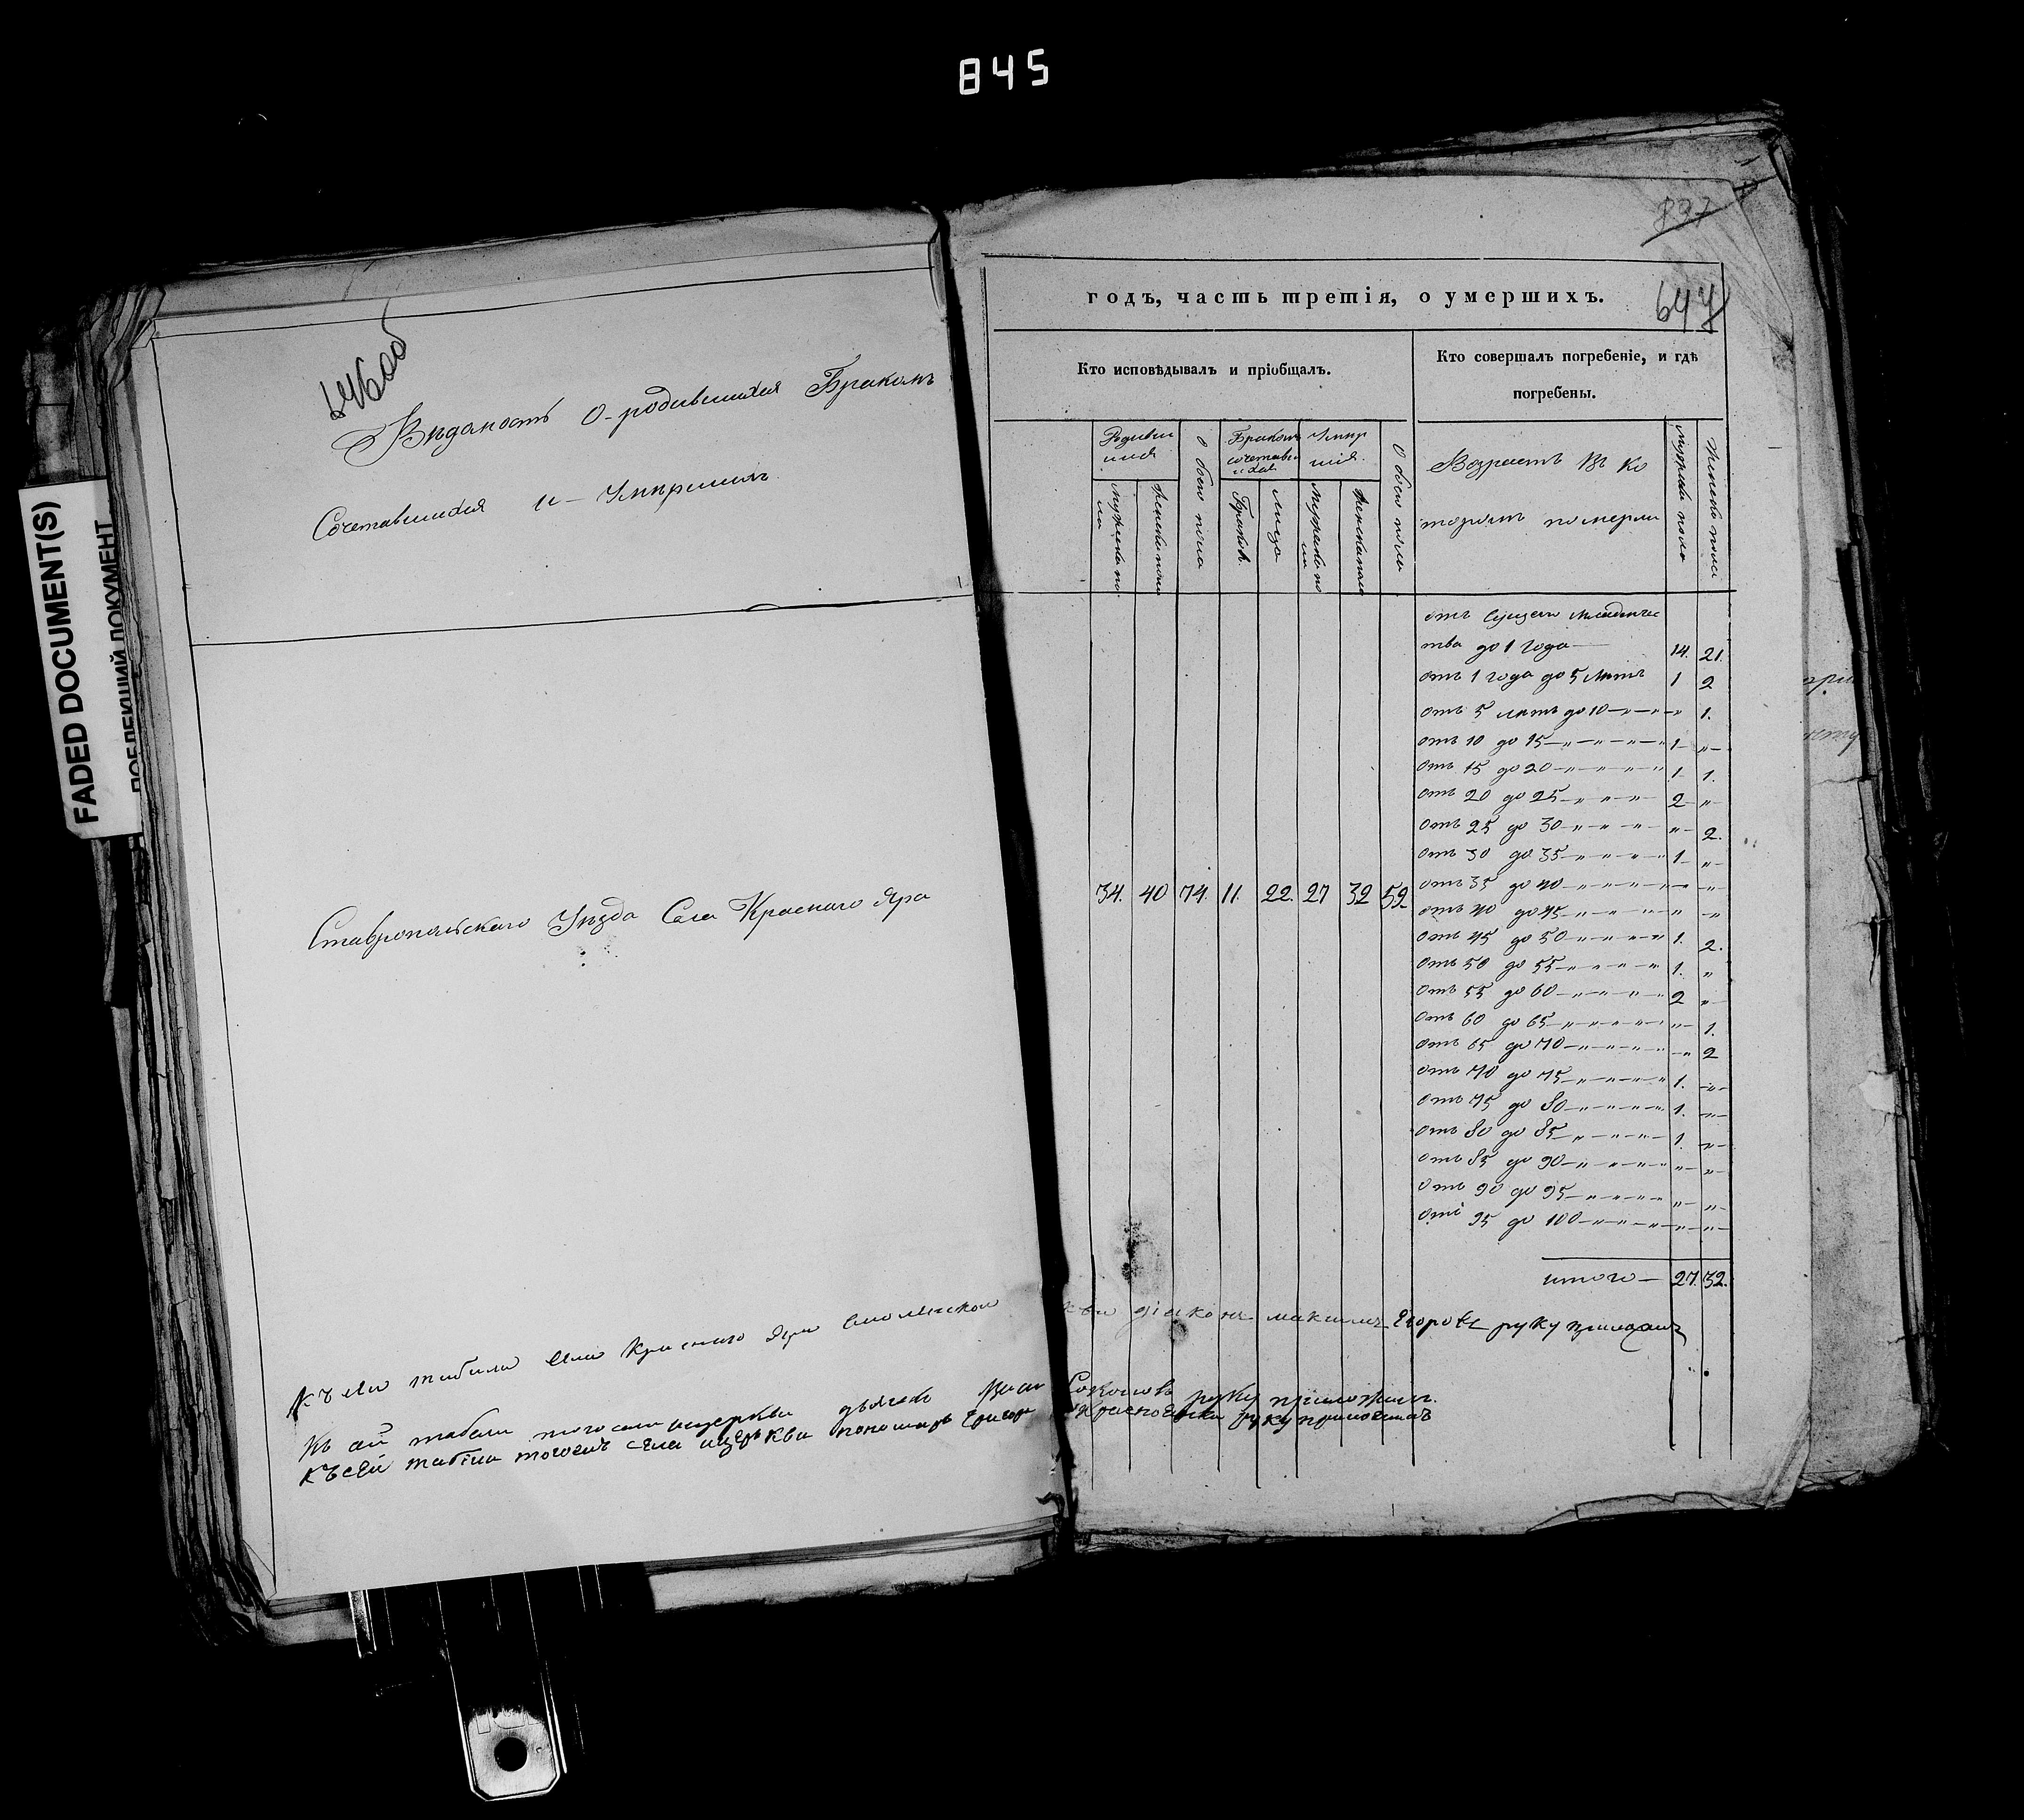 845
FADED DOCUMENT(S)
ПОБЛЕКШИЙ ДОКУМЕНТ
646об
Вѣдомость о родившихся Бракомъ
Сочетавшихся и Умершихъ
Ставропольскаго Уѣзда Села Краснаго Яра
837
647
годъ, часть третія, о умершихъ.
Кто исповѣдывалъ и пріобщалъ.
Кто совершалъ погребеніе, и гдѣ
погребены.
Родивши
шися
Мужеска по
ла
Женска пола
Обоего пола
Бракомъ
сочетавши
ихся
Браковъ
Лицъ
Умер
шія.
Мужеска по
ла
Женска пола
Обоего пола
Возрастъ въ ко
торомъ померли
Мужеска пола
Женска пола
34. 40 74. 11. 22. 27 32 59
отъ сущаго младенчес
тва до 1 года — 14. 21.
отъ 1 года до 5 лѣтъ 1 2
отъ 5 лѣтъ до 10 — „ — „ — „ 1.
отъ 10 до 15 — „ — „ — „ — „ 1 — „ —
отъ 15 до 20 — „ — „ — „ — „ 1 1.
отъ 20 до 25 — „ — „ — „ — 2 — „ —
отъ 25 до 30 — „ — „ — „ — „ — „ — 2.
отъ 30 до 35 — „ — „ — „ — „ 1 — „ —
отъ 35 до 40 — „ — „ — „ — „ — „ — „ —
отъ 40 до 45 — „ — „ — „ — „ „ „
отъ 45 до 50 — „ — „ — „ — „ 1. 2.
отъ 50 до 55 — „ — „ — „ — „ 1. „
отъ 55 до 60 — „ — „ — „ — „ 2 „ —
отъ 60 до 65 — „ — „ — „ — „ — „ — 1.
отъ 65 до 70 — „ — „ — „ — „ — „ 2
отъ 70 до 75 — „ — „ — „ — „ 1. — „ —
отъ 75 до 80 — „ — „ — „ — „ 1. — „ —
отъ 80 до 85 — „ — „ — „ — „ — 1. „ —
отъ 85 до 90 — „ — „ — „ — „ — „ — „ —
отъ 90 до 95 — „ — „ — „ — „ — „ — „ —
отъ 95 до 100 — „ — „ — „ — „ — „ — „ —
итого — 27. 32.
Къ сей табели села Краснаго Яра Смоленской діаконъ максимъ Егоровъ руку приложилъ
Къ сей табели того села церкви дьячекъ Соколовъ руку приложилъ.
Къ сей табели тогожъ села церкви пономарь Григорій руку приложилъ